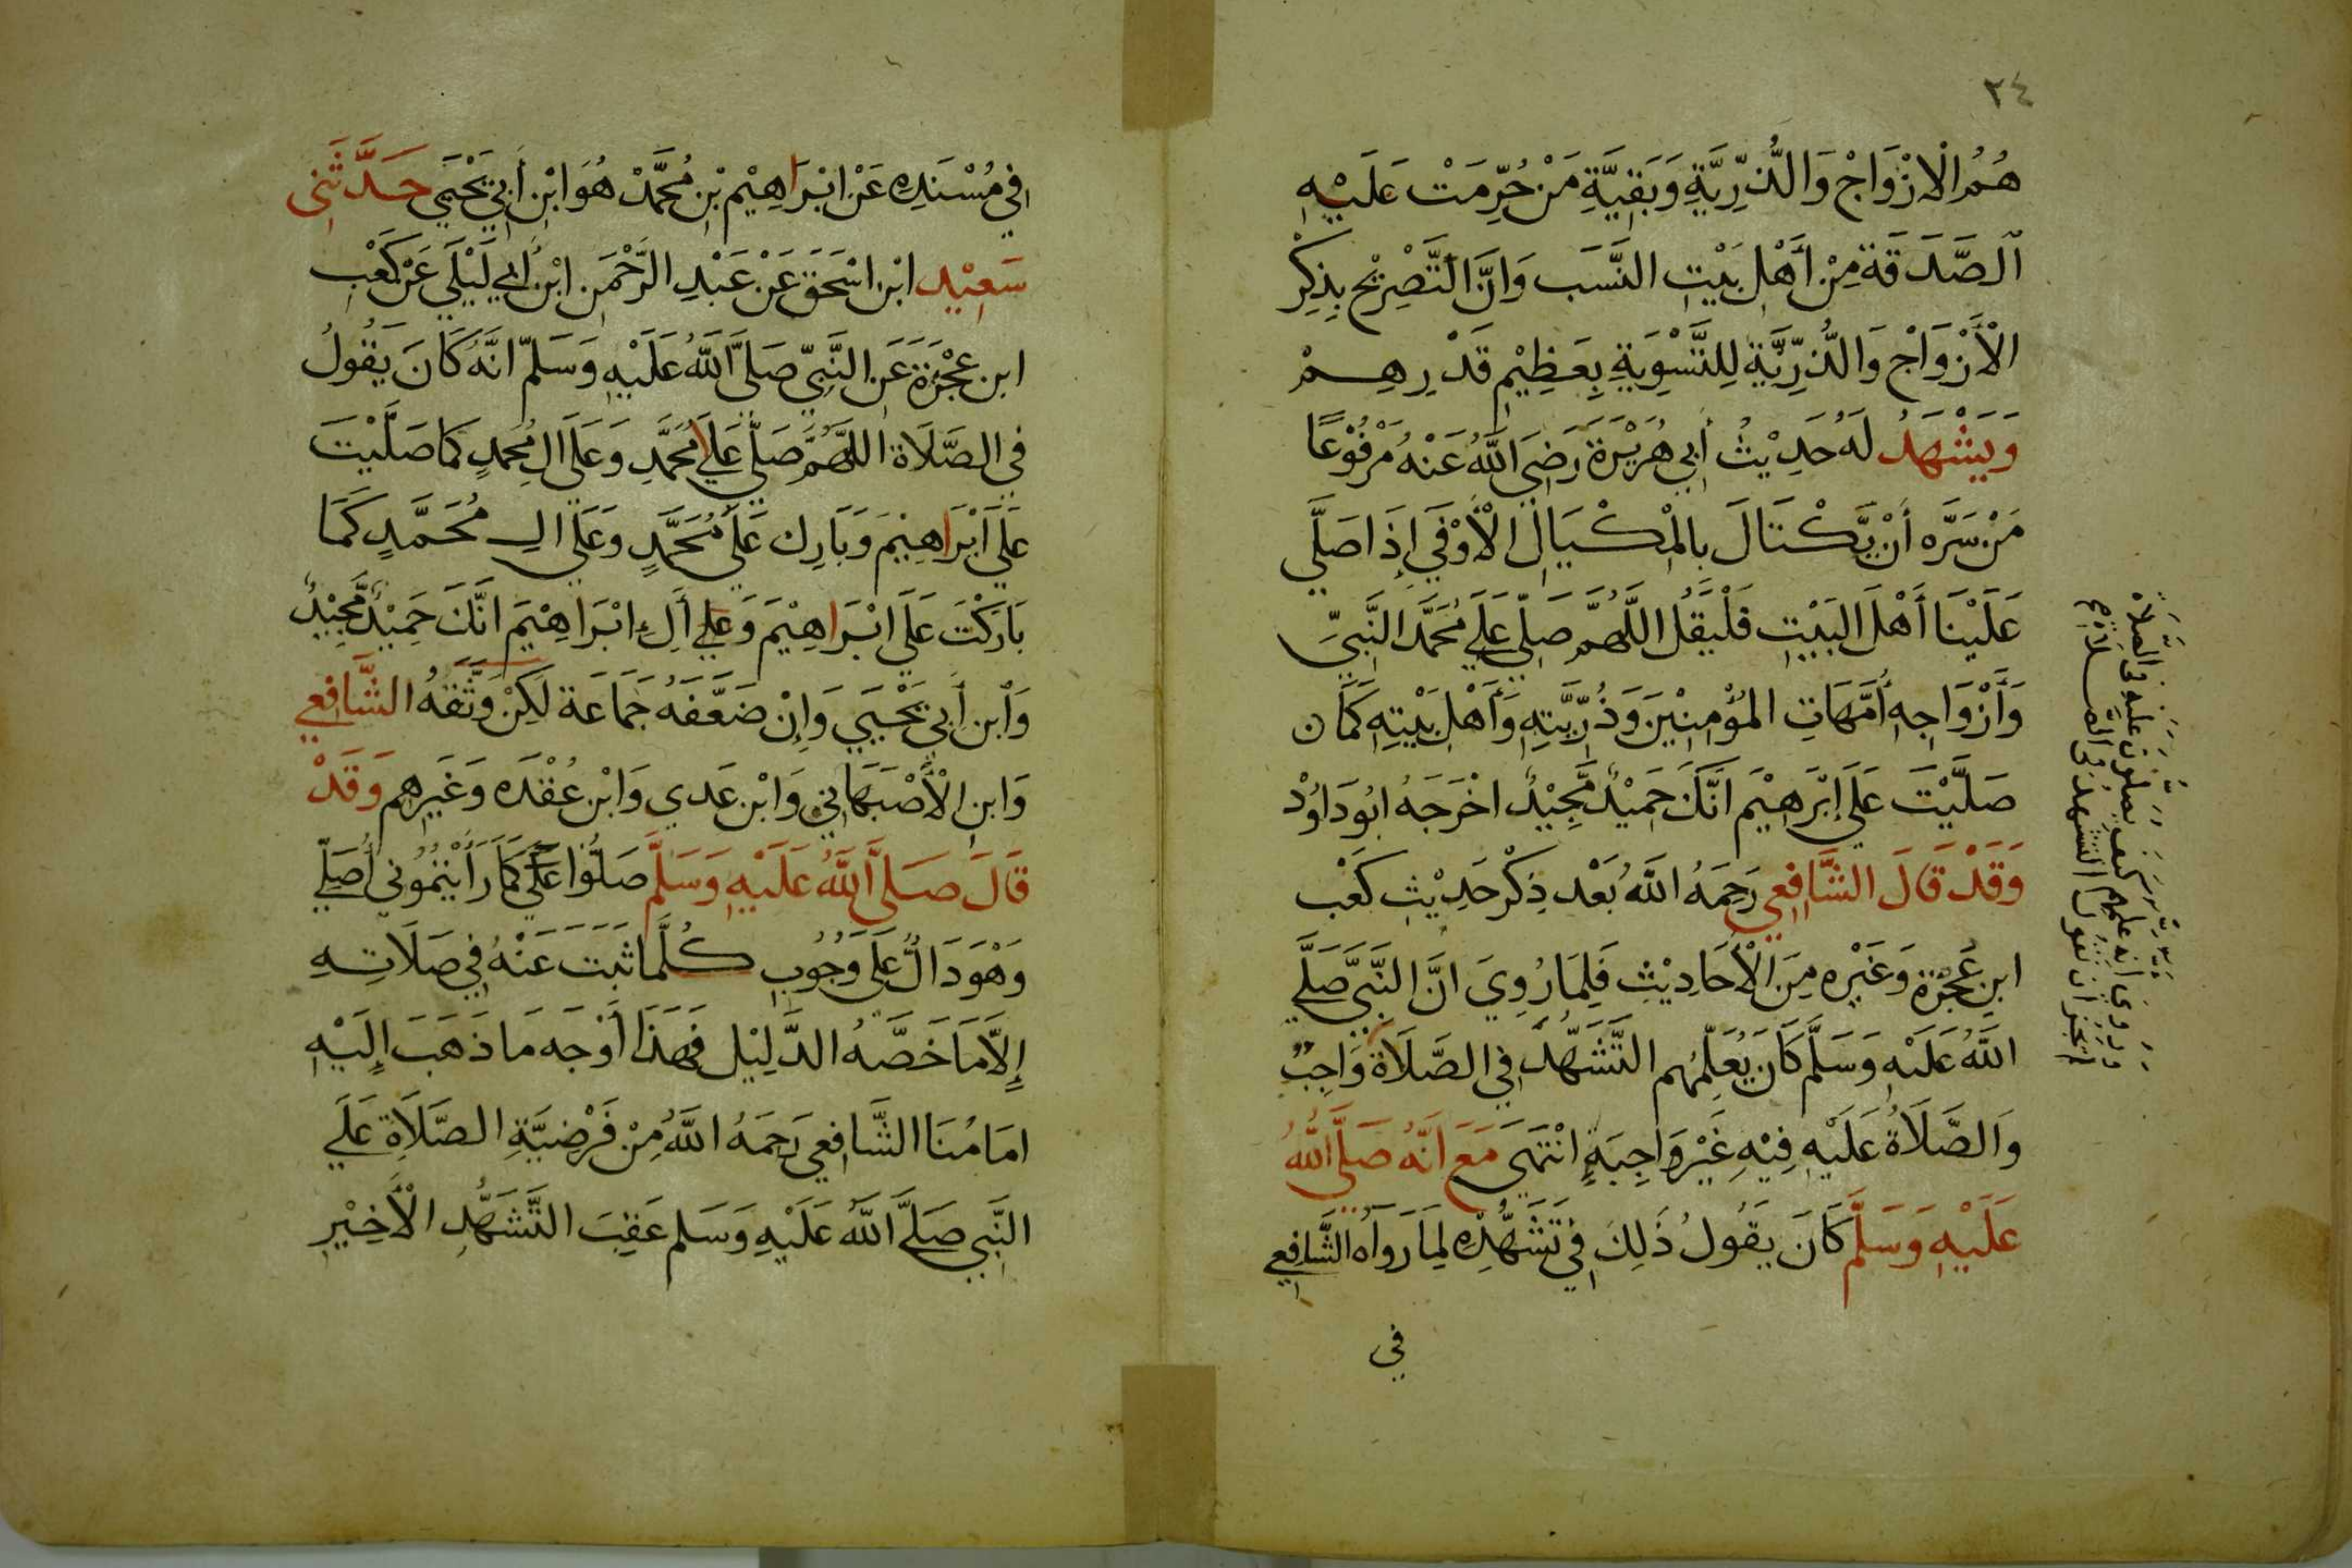 ٢٤
هُمُ الْازْوَاجْ وَالذُّرِّيَّةِ وَبَقِيَّةِ مَنْ حُرِّمَتْ عَلَيْهِ
الصَّدَقَة مِنْ أَهْلِ بَيْتِ النَّسَب وَانَّ التَّصْرِيْح بِذِكْرِ
الْأَزْوَاجْ وَالذُّرِّيَّةِ لِلتَّسْوِيَةِ بِعَظِيْمِ قَدْرِهِمْ
وَيَشْهَدُ لَهُ حَدِيْثُ أَبِي هُرَيْرَةَ رَضِيَ اللَّهُ عَنْهُ مَرْفُوْعًا
مَنْ سَرَّه أَنْ يَّكْتَالَ بِالْمِكْيَالِ الْأَوْفَي إِذَا صَلَّي
عَلَيْنَا أَهْلَ البَيْتِ فَلْيَقُلْ اللَّهُمَّ صَلِّ عَلَي مُحَمَّد النَّبِيّ
وَأَزْوَاجِهِ أُمَّهَاتِ المُؤْمِنِيْنَ وَذُرِّيَّتِهِ وَأَهْلِ بَيْتِهِ كَمَا ن
صَلَّيْتَ عَلَي إِبْرَهِيْم انَّكَ حَمِيْدٌ مَّجِيْدٌ اخْرَجَهُ ابُودَاوُدْ
وَقَدْ قَالَ الشَّافِعِي رَحِمَهُ اللَّهُ بَعْد ذِكْر حَدِيْثِ كَعْب
ابنِ عُجْرَة وَغَيْرِه مِنَ الْأَحَادِيْثِ فَلِمَا رُوِيَ انَّ النَّبِيَّ صَلَّي
اللَّهُ عَلَيْهِ وَسَلَّم كَانَ يُعَلِّمُهُم التَّشَهُّد فِي الصَّلَاة وَاجِبٌ
وَالصَّلَاةُ عَلَيْهِ فِيْهِ غَيْر وَاجِبَةٍ انْتَهَى مَعَ انَّهُ صَلَّي اللَّهُ
عَلَيْهِ وَسَلَّم كَانَ يَقُولُ ذَلِكَ فِي تَشَهُّدِه لِمَا رَوَاه الشَّافِعِي
في
وروي انه عليهم كيف يصلون عليه في الصلاة
لم يجز ان نقول التشهد في الصلاة
في مُسْنَدِه عَنْ ابْرَاهِيْم بْنِ مُحَمَّدْ هُوَ ابْن أَبِي يَحْيَي حَدَّثَنِي
سَعِيْد ابْن اسْحَقَ عَنْ عَبْدِ الرَّحْمَن ابْنِ أَبِي لَيْلَي عَنْ كَعْبِ
ابن عُجْرَة عَنِ النَّبِيِّ صَلَّي اللَّهُ عَلَيْهِ وَسَلَّم انَّهُ كَانَ يَقُولُ
فِي الصَّلَاة اللَّهُمَّ صَلِّ عَلَي مُحَمَّدِ وَعَلَي الِ مُحَمدٍ كَمَا صَلَّيْتَ
عَلَي ابْرَاهِيْمَ وَبَارِك عَلَي مُحَمَّدٍ وَعَلَي الِ مُحَمَّدٍ كَمَا
بَارَكْتَ عَلَي ابْرَاهِيْمَ وَعَلي أَلِ ابْرَاهِيْمَ انَّكَ حَمِيْدٌ مَّجِيْدٌ
وَابن أَبِي يَحْيَي وَإِنْ ضَعَّفَهُ جَمَاعَة لَكِنْ وَثَّقَهُ الشَّافِعِي
وَابنِ الْأَصْبَهَانِي وَابْن عَدِي وَابْن عُقْدَه وَغَيرِهِم وَقَدْ
قَالَ صَلَّي اللَّهُ عَلَيْهِ وَسَلَّم صَلُّوا عَلَيَّ كَمَا رَأَيْتُمُونِي أُصَلِّي
وَهْوَ دَالٌّ عَلَى وُجُوبِ كُلَّمَا ثَبَتَ عَنْهُ فِي صَلَاتِهِ
إِلَّا مَا خَصَّهُ الدَّلِيْل فَهَذَا أَوْجَه مَا ذَهَبَ إِلَيْهِ
امَامُنَا الشَّافِعِي رَحِمَهُ اللَّهُ مِنْ فَرْضِيَّةِ الصَّلَاةِ عَلَي
النَّبِي صَلَّي اللَّهُ عَلَيْهِ وَسَلم عَقِبَ التَّشَهُّدِ الْأَخِيْرِ